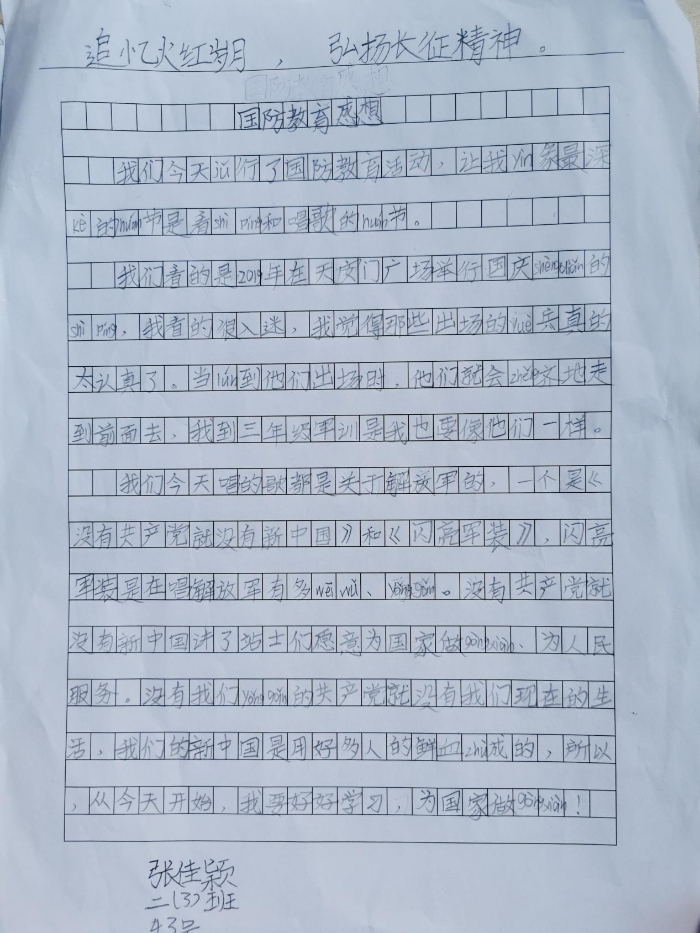 追忆火红岁月，弘扬长征精神。
国防教育感想
我们今天进行了国防教育活动，让我yìn象最深
kè的huán节是看shì pín和唱歌的huán节。
我们看的是2019年在天安门广场举行国庆shèng diǎn的
shì pín，我看的很入迷，我觉得那些出场的yuè兵真的
太认真了。当lún到他们出场时，他们就会zhěng齐地走
到前面去，我到三年级军训是我也要像他们一样。
我们今天唱的歌都是关于解放军的，一个是《
没有共产党就没有新中国》和《闪亮军装》，闪亮
军装是在唱解放军有多wēi wǔ、yǒng gǎn。没有共产党就
没有新中国讲了战士们愿意为国家做gòng xiàn、为人民
服务。没有我们yǒng gǎn的共产党就没有我们现在的生
活，我们的新中国是用好多人的鲜血zhù成的，所以
，从今天开始，我要好好学习，为国家做gòng xiàn！
张佳颖
二（3）班
43号